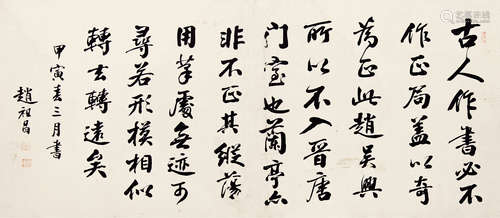 古人作書必不
作正局蓋以奇
為正此趙吳興
所以不入晉唐
门室也蘭亭亦
非不正其縱蕩
用筆處無迹可
尋若形模相似
轉去轉遠矣
甲寅春三月書
趙祖昌